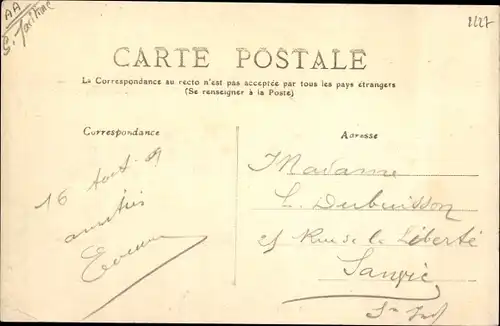 AA
CARTE POSTALE
La Correspondance au recto n'est pas acceptée par tous les pays étrangers
(Se renseigner à la Poste)
Correspondance
16 Août 09
amitiés
Adresse
Madame
L. Dubuisson
Rue de la Liberté